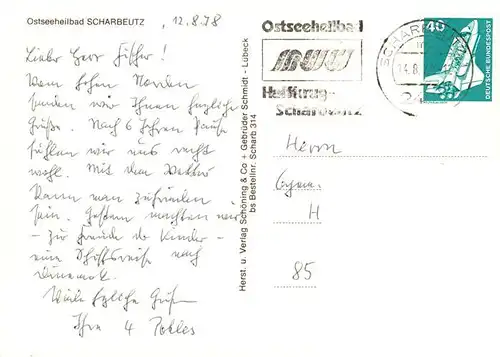 Ostseeheilbad SCHARBEUTZ
12.8.78
Lieber Herr Fischer!
Vom hohen Norden
senden wir Ihnen herzliche
Grüße. Nach 6 Jahren Pause
fühlen wir uns recht
wohl. Mit dem Wetter
kann man zufrieden
sein. Gestern machten wir
- zur Freude der Kinder -
eine Schiffsreise nach
Dänemark.
Viele herzliche Grüße
Ihre 4
Herst. u. Verlag Schöning & Co + Gebrüder Schmidt - Lübeck
bs Bestellnr. Scharb 314
Ostseeheilbad
Haffkrug-
Scharbeutz
SCHARBEUTZ
14.8.
24
40
DEUTSCHE BUNDESPOST
Herrn
H
85